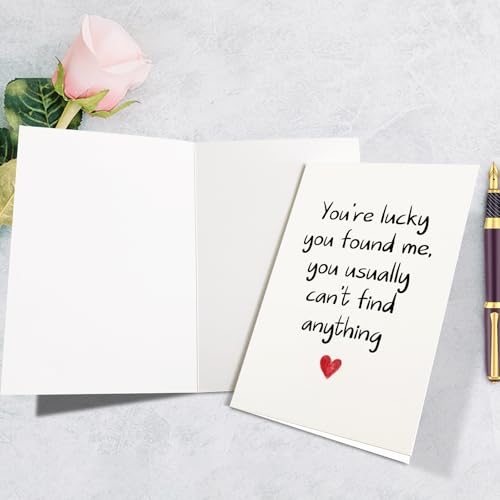 You're lucky
you found me,
you usually
can't find
anything